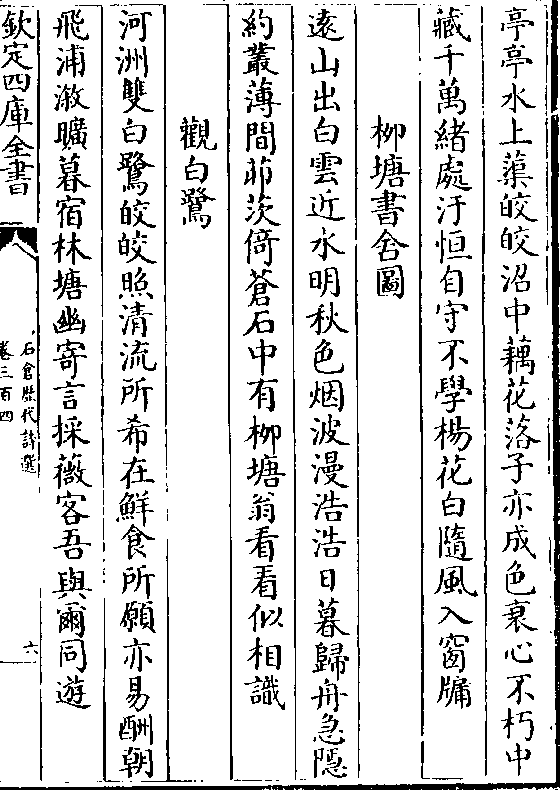 亭亭水上蕖皎皎沼中藕花落子亦成色衰心不朽中
藏千萬緒處汙恒自守不學楊花白隨風入窗牖
栁塘書舍圖
逺山出白雲近水明秋色烟波漫浩浩日暮歸舟急隠
約叢薄間茆茨倚蒼石中有栁塘翁看看似相識
觀白鷺
河洲雙白鷺皎皎照清流所希在鮮食所願亦易酬朝
飛浦溆曠暮宿林塘幽寄言採薇客吾與爾同遊
欽定四庫全書
石倉歴代詩選
卷三百四
六